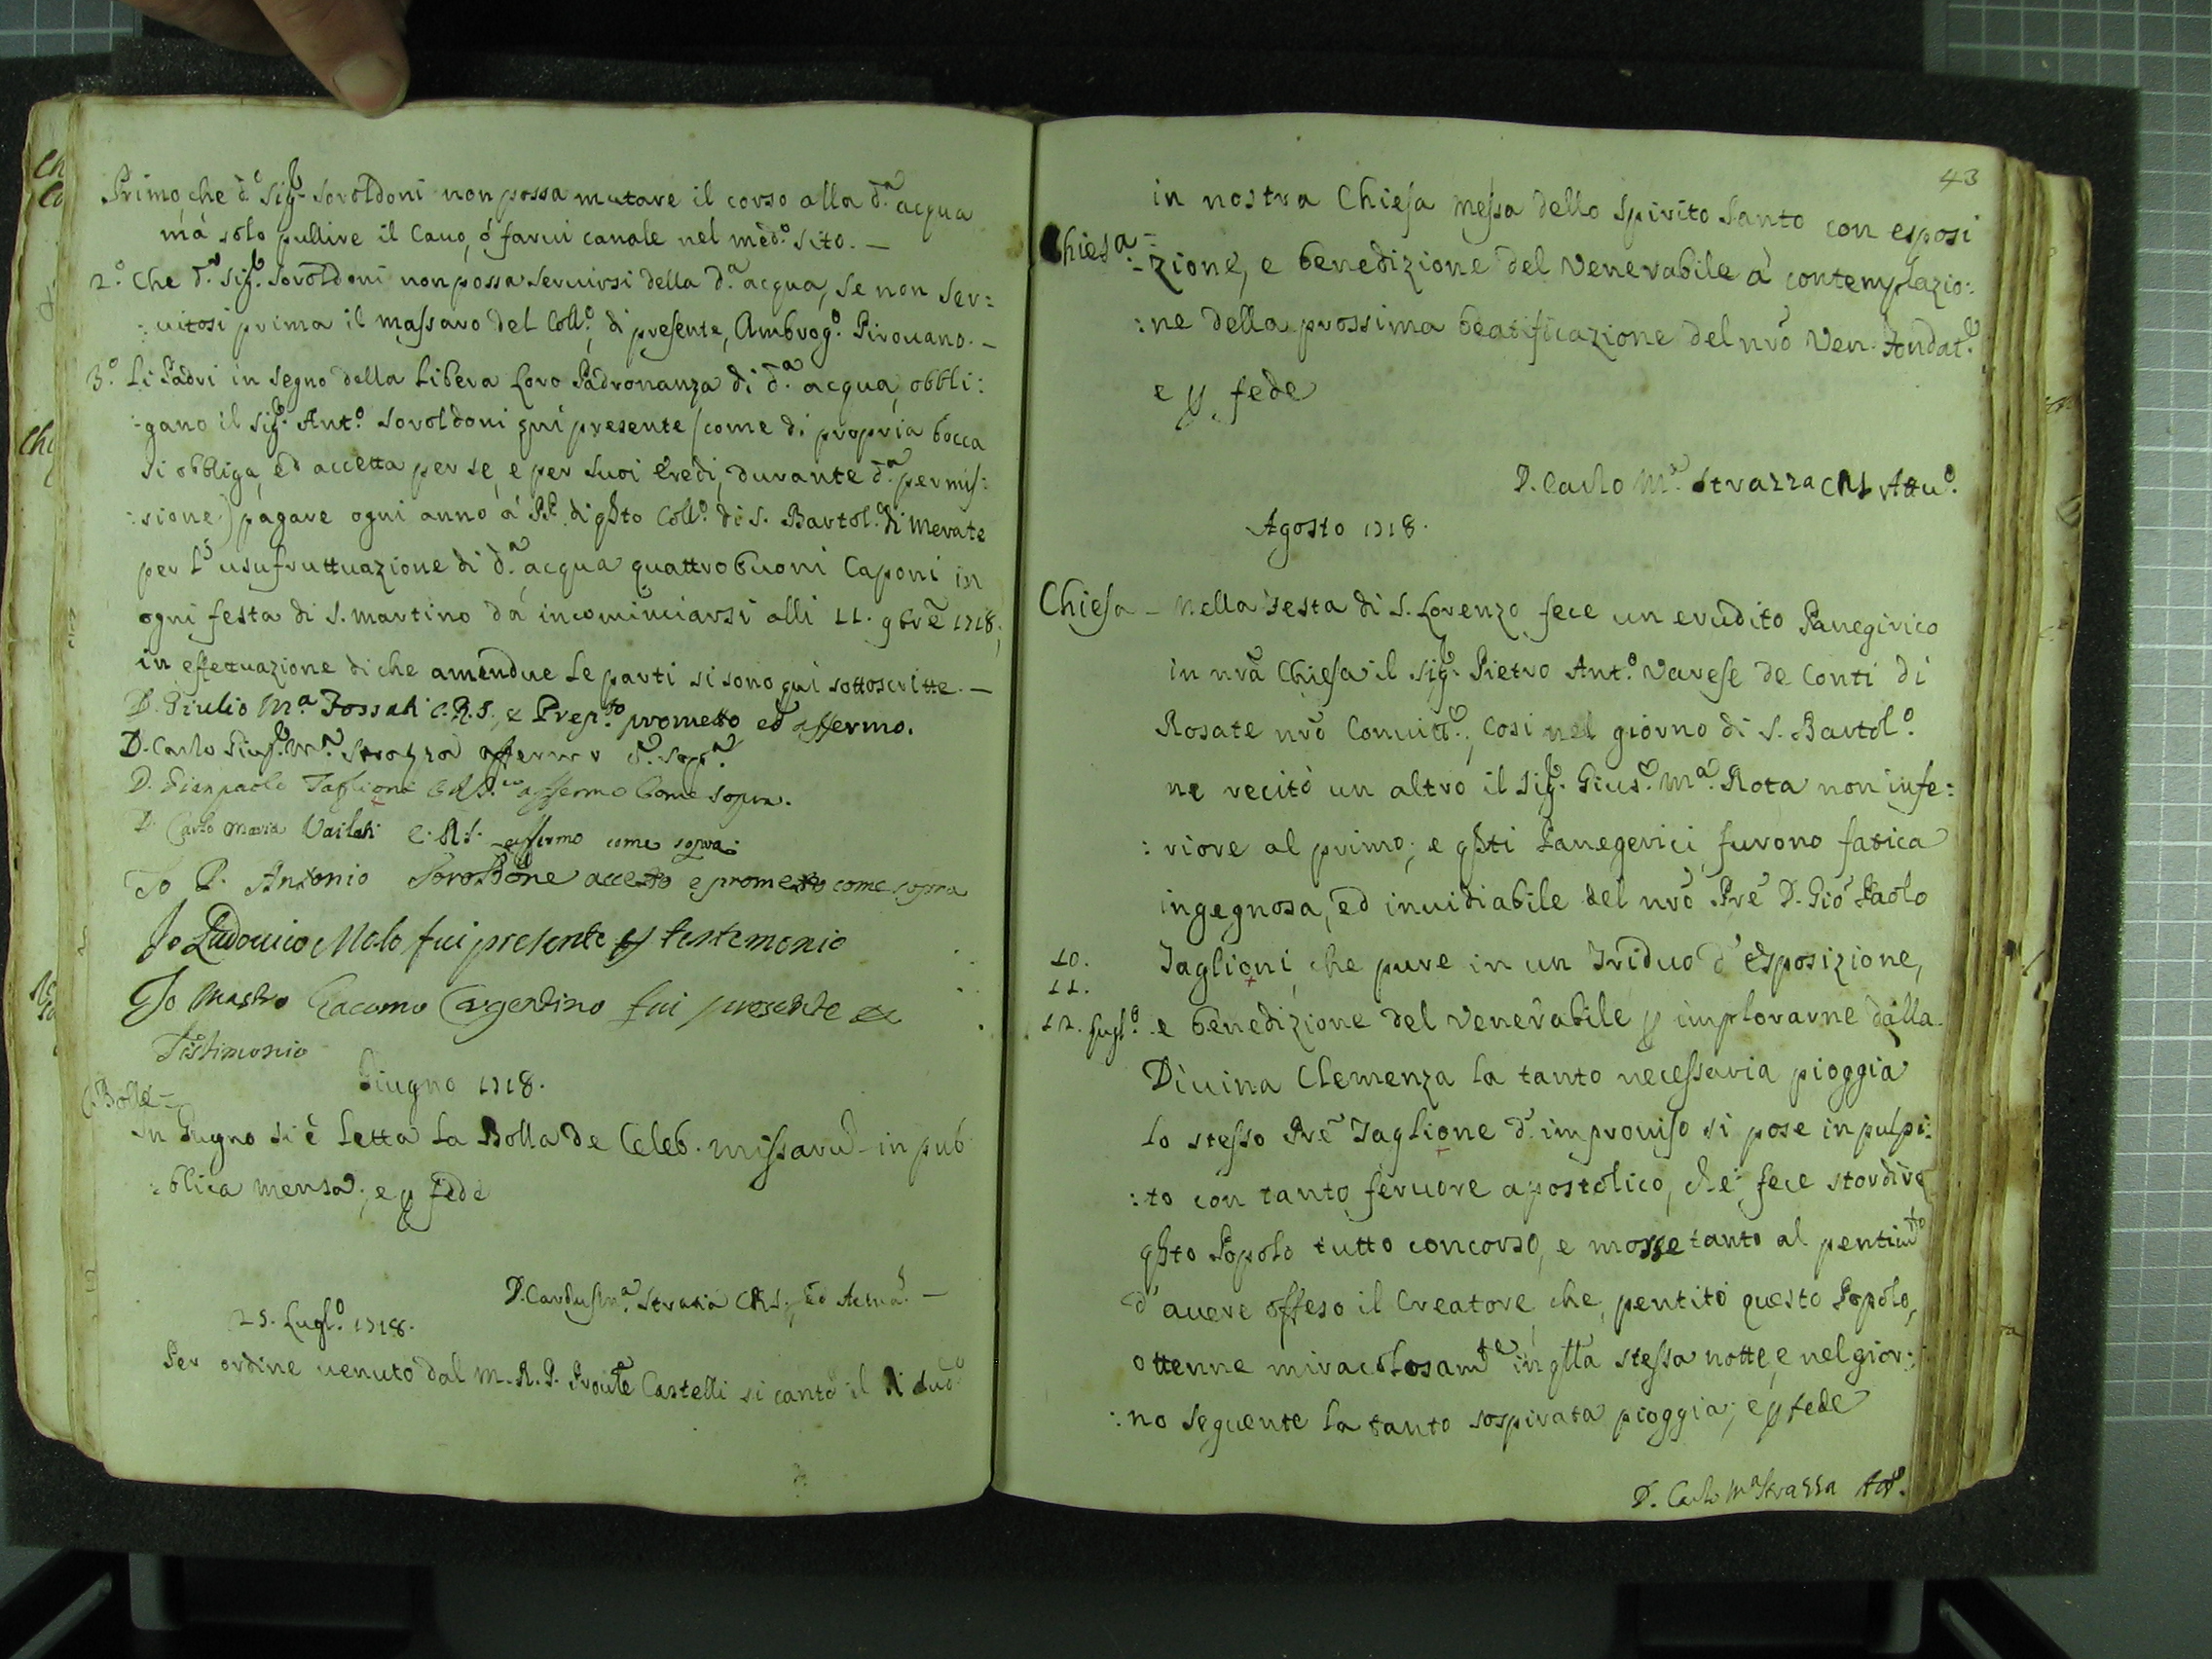 Primo, che d.º Sig.r Soroldoni non possa mutare il corso alla d.a acqua
mà solo pullire il Cauo, ó farui canale nel mèd.º sito. —
2.º Che d.º Sig.r Soroldoni non possa seruirsi della d.a acqua, se non ser:
:uitosi prima il massaro del Coll.º, di presente, Ambrog.º Pirouano. —
3.º Li Padri in segno della libera loro Padronanza di d.a acqua, obbli:
:gano il Sig.r Ant.º Soroldoni qui presente (come di propria bocca
si obbliga, ed accetta per se, e per suoi Eredi, durante d.a permis:
:sione) pagare ogni anno á PP. di qsto Coll.º di S. Bartol.º di Merate
per l'usufruttuazione di d.a acqua quattro buoni Caponi in
ogni festa di S. Martino dá incominciarsi alli 11. gbrē 1718;
in effettuazione di che amendue le parti si sono qui sottoscritte. —
D. Giulio M.a Fossati C.R.S., e Prep.to prometto ed affermo.
D. Carlo Gius.e M.a Strazza affermo c. sop.a
D. Gianpaolo Taglioni C.R.S. affermo Come sopra.
D. Carlo Maria Vailati C.R.S. affermo come sopra.
Io P. Antonio Soroldone accetto e prometto come sopra
Io Ludouico Molo fui presente per testemonio
Io Mastro Giacomo Argentino fui presente
Tistimonio
Giugno 1718.
Bolle —
In Giugno si è letta la Bolla de Celeb. missarū in pub
:blica mensa; e p fede
D. Carlus M.a Strazza CRS.
25. Lugl.º 1718.
Per ordine uenuto dal M.R.P. Prouīle Castelli si cantò il
43
in nostra Chiesa Messa dello Spirito Santo con esposi
Chiesa. -zione, e benedizione del Venerabile á contemplazio:
:ne della prossima beatificazione del nrō Ven. Fondat.e
e p fede
D. Carlo M.a Strazza CRS Attu.º
Agosto 1718.
Chiesa — Nella festa di S. Lorenzo fece un erudito Panegirico
in nrā Chiesa il Sig.r Pietro Ant.º Varese de Conti di
Rosate nrō Conuitt.e, così nel giorno di S. Bartol.º
ne recitò un altro il Sig.r Gius.e M.a Rota non infe:
:riore al primo; e qsti Panegerici furono fatica
ingegnosa, ed inuidiabile del nrō Prē D. Gio Paolo
10. Taglioni, che pure in un Triduo d'esposizione,
11.
12. Lugl.º e benedizione del Venerabile p implorarne dalla
Diuina Clemenza la tanto necessaria pioggia
lo stesso Prē Taglione d'improuiso si pose in pulpi:
:to con tanto feruore apostolico, che fece stordire
qsto Popolo tutto concorso, e mosse tanto al pentim.to
d'auere offeso il Creatore, che, pentito questo Popolo,
ottenne miracolosam.te in qlla stessa notte, e nel gior:
:no seguente la tanto sospirata pioggia; e p fede
D. Carlo M.a Strazza Att.º